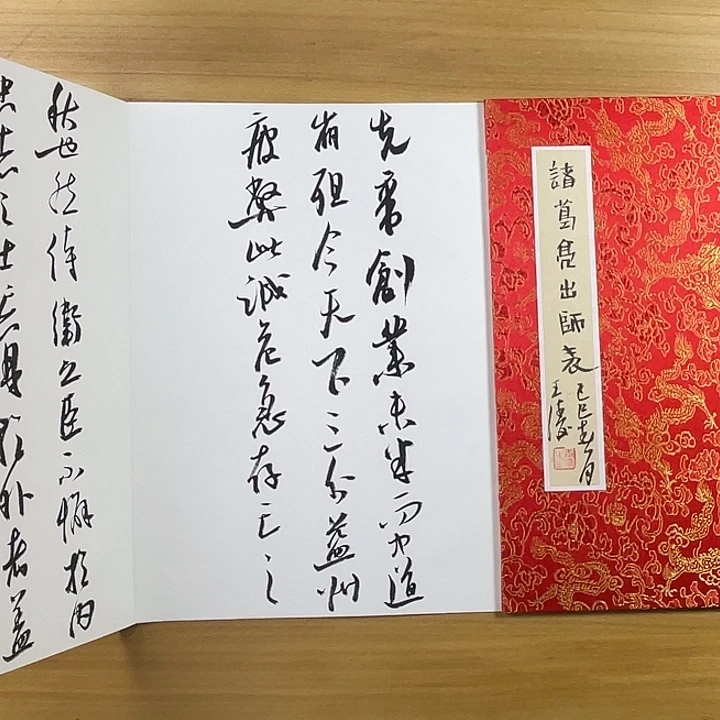 諸葛亮出師表
先帝創業未半而中道
崩殂今天下三分益州
疲弊此誠危急存亡之
秋也然侍衛之臣不懈於內
忠志之士忘身於外者蓋